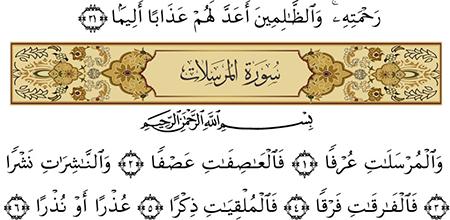 رَحْمَتِهِۦ ۚ وَٱلظَّٰلِمِينَ أَعَدَّ لَهُمْ عَذَابًا أَلِيمًا ﴿٣١﴾
سُورَةُ المُرْسَلَات
بِسْمِ ٱللَّهِ ٱلرَّحْمَٰنِ ٱلرَّحِيمِ
وَٱلْمُرْسَلَٰتِ عُرْفًا ﴿١﴾ فَٱلْعَٰصِفَٰتِ عَصْفًا ﴿٢﴾ وَٱلنَّٰشِرَٰتِ نَشْرًا
﴿٣﴾ فَٱلْفَٰرِقَٰتِ فَرْقًا ﴿٤﴾ فَٱلْمُلْقِيَٰتِ ذِكْرًا ﴿٥﴾ عُذْرًا أَوْ نُذْرًا ﴿٦﴾